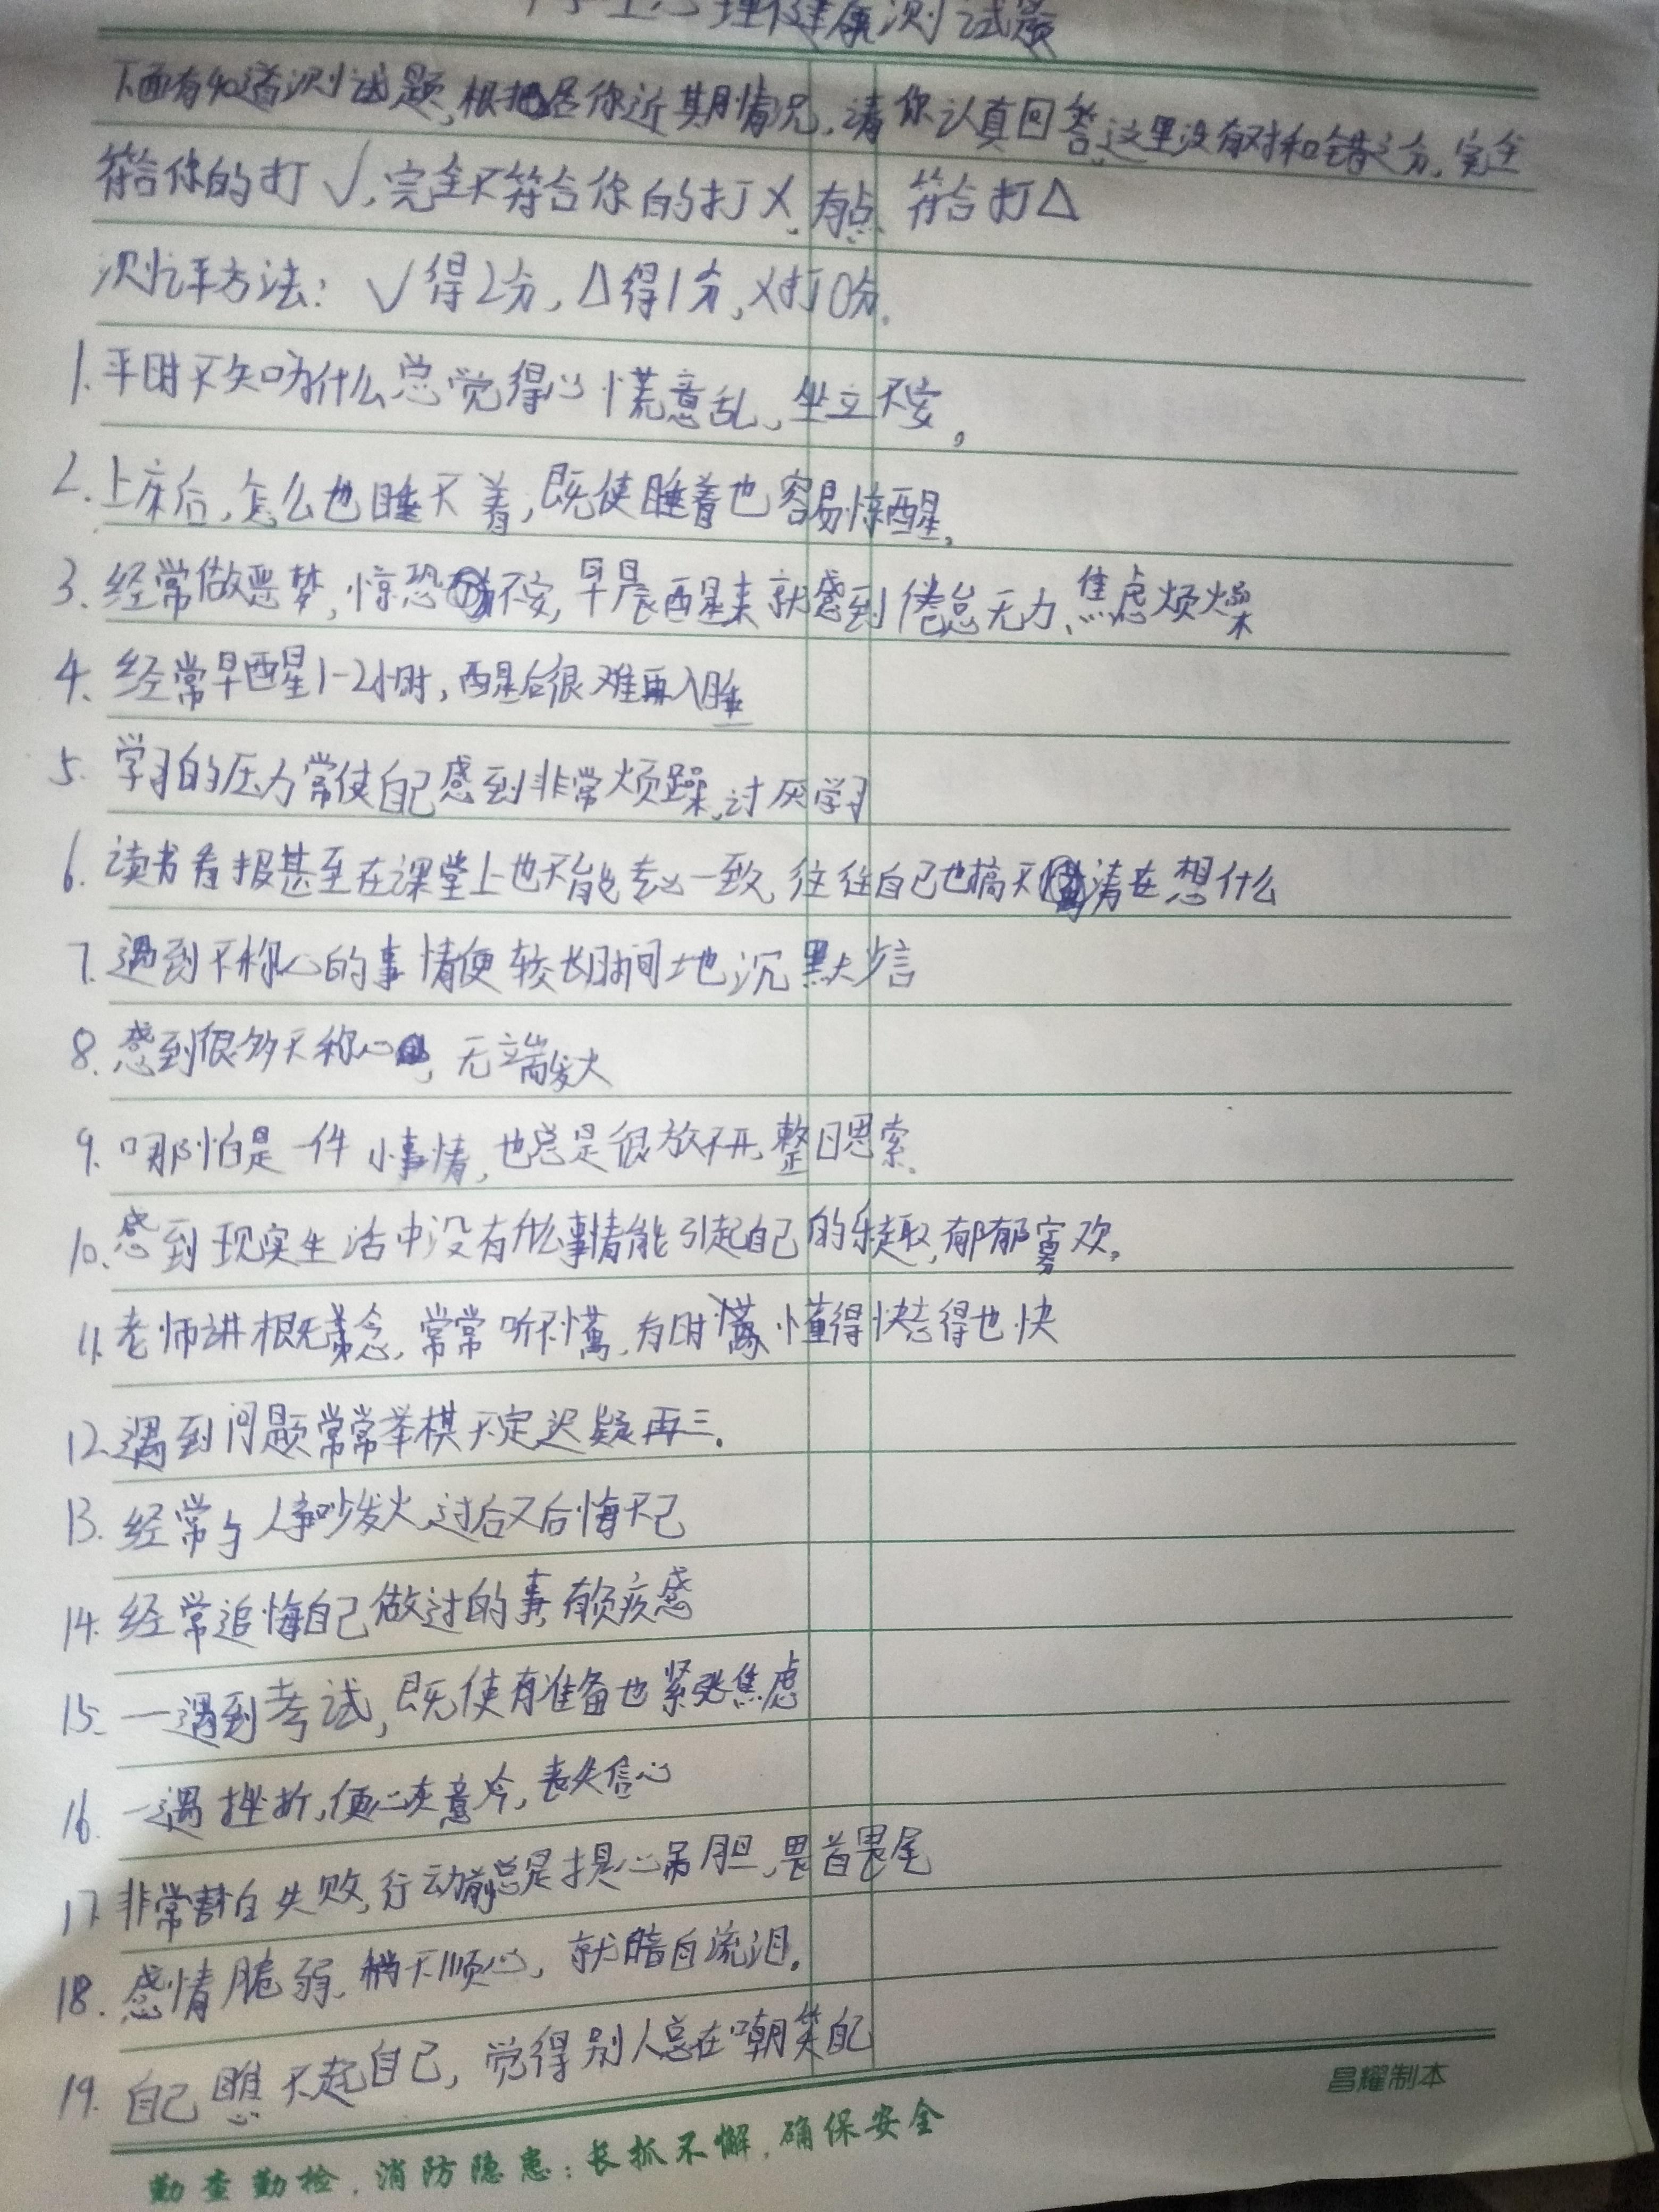 理健康测试题
下面有40道测试题,根据您你近期情况,请你认真回答,这里没有对和错之分,完全
符合你的打√,完全不符合你的打X,有点符合打△
测评方法:√得2分,△得1分,X打0分.
1.平时不知为什么总觉得心慌意乱、坐立不安。
2.上床后,怎么也睡不着,既使睡着也容易惊醒.
3.经常做恶梦,惊恐不安,早晨醒来就感到倦怠无力、焦虑烦燥
4.经常早醒1-2小时,醒后很难再入睡
5.学习的压力常使自己感到非常烦躁,讨厌学习
6.读书看报甚至在课堂上也不能专心一致,往往自己也搞不清在想什么
7.遇到不称心的事情便较长时间地沉默少言
8.感到很多不称心,无端发火
9.哪怕是一件小事情,也总是很放不开,整日思索.
10.感到现实生活中没有什么事情能引起自己的乐趣,郁郁寡欢。
11.老师讲概念,常常听不懂,有时懂得快忘得也快
12.遇到问题常常举棋不定迟疑再三.
13.经常与人争吵发火,过后又后悔不已
14.经常追悔自己做过的事,有负疚感
15.一遇到考试,既使有准备也紧张焦虑
16.一遇挫折,便心灰意冷,丧失信心
17.非常害怕失败,行动前总是提心吊胆,畏首畏尾
18.感情脆弱,稍不顺心,就暗自流泪.
19.自己瞧不起自己,觉得别人总在嘲笑自己
昌耀制本
勤查勤检,消防隐患;长抓不懈,确保安全